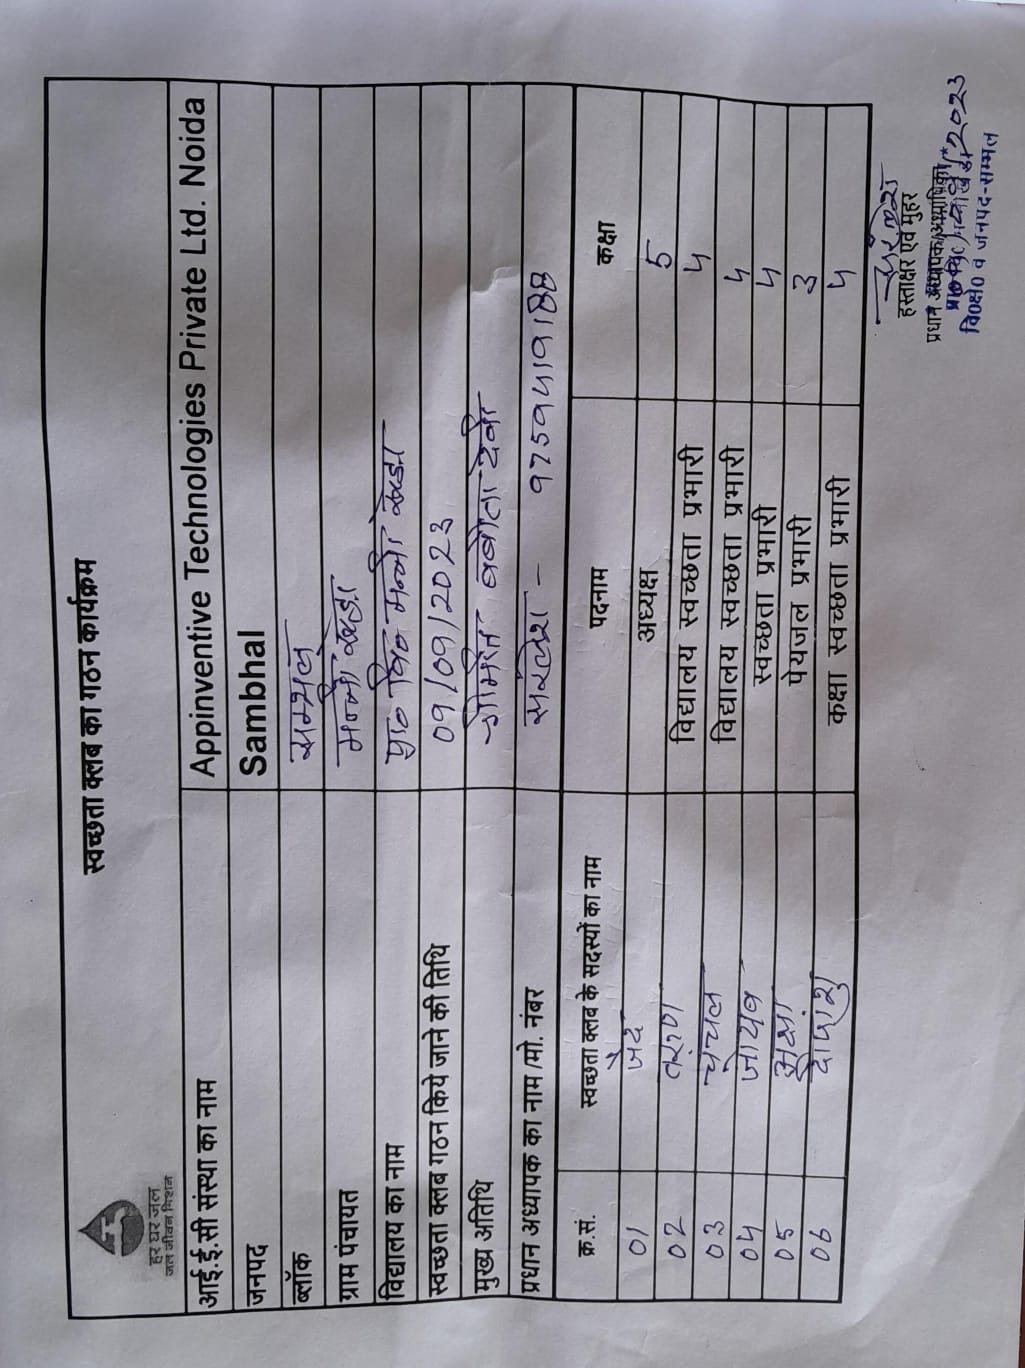 स्वच्छता क्लब का गठन कार्यक्रम
हर घर जल
जल जीवन मिशन
आई.ई.सी संस्था का नाम Appinventive Technologies Private Ltd. Noida
जनपद Sambhal
ब्लॉक सम्भल
ग्राम पंचायत मन्नी खेड़ा
विद्यालय का नाम प्रा० वि० मन्नी खेड़ा
स्वच्छता क्लब गठन किये जाने की तिथि 09/09/2023
मुख्य अतिथि श्रीमति बबीता देवी
प्रधान अध्यापक का नाम /मो. नंबर सरलेश - 9759419188
क्र.सं. स्वच्छता क्लब के सदस्यों का नाम पदनाम कक्षा
01 जैद अध्यक्ष 5
02 तरुण विद्यालय स्वच्छता प्रभारी 4
03 चंचल विद्यालय स्वच्छता प्रभारी 4
04 जोयब स्वच्छता प्रभारी 4
05 पेयजल प्रभारी 3
06 दीपांशु कक्षा स्वच्छता प्रभारी 4
हस्ताक्षर एवं मुहर
प्रधान अध्यापक/अध्यापिका
2023
वि०क्षे० व जनपद-सम्भल